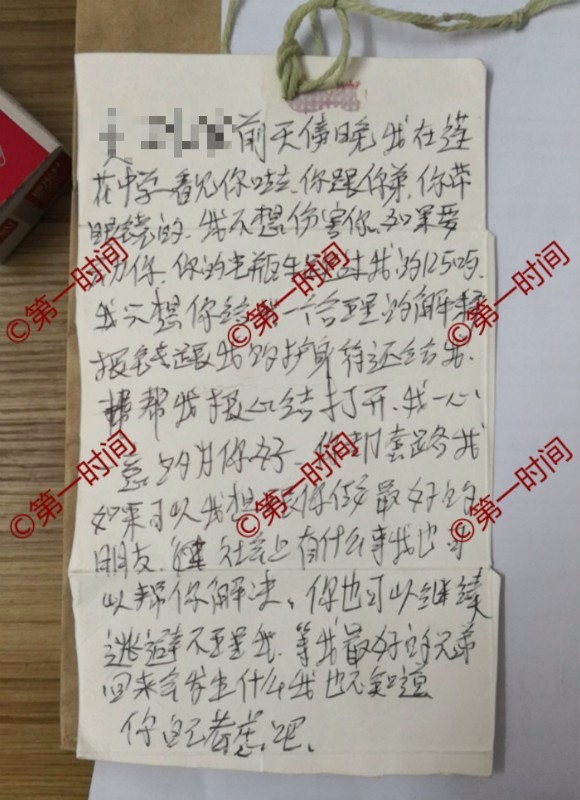 前天傍晚我在莲
花中学看见你哇去.你跟你弟.你带
眼镜的.我不想伤害你.如果要
你.你的电瓶车 过我的125吗.
我只想你给我一个合理的解释
把 跟我的护身符还给我.
帮我把心结打开.我一心
一意的对你好.你却套路我
如果可以我想跟你做最好的
朋友. 社会上有什么事我也可
以帮你解决。你也可以继续
逃避不理我.等我最好的兄弟
回来会发生什么我也不知道
你自己考虑吧.
©第一时间
©第一时间
©第一时间
©第一时间
©第一时间
©第一时间